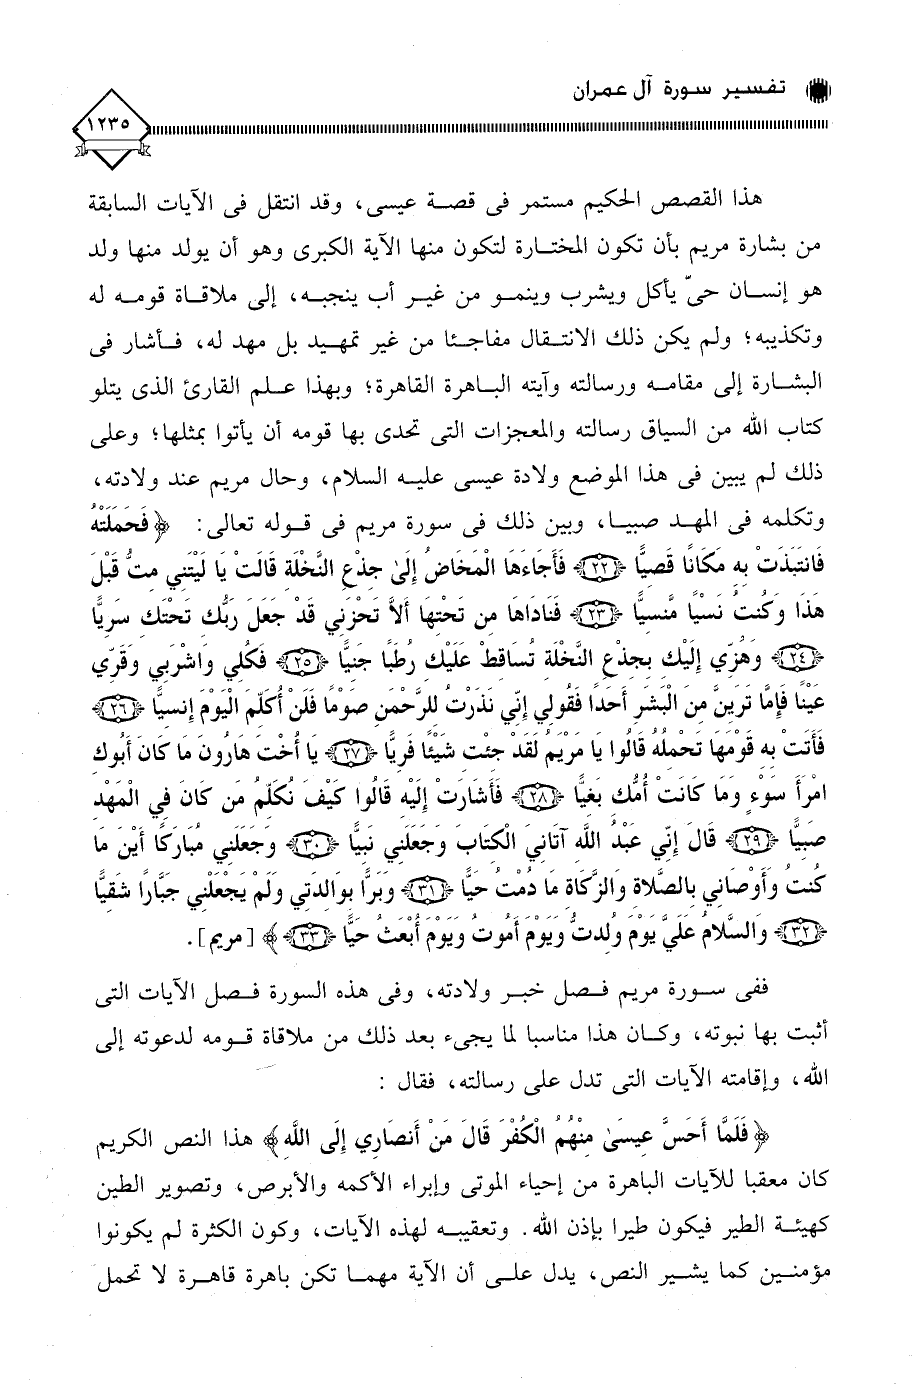 تفسير سورة آل عمران
١٢٣٥
هذا القصص الحكيم مستمر فى قصة عيسى، وقد انتقل فى الآيات السابقة
من بشارة مريم بأن تكون المختارة لتكون منها الآية الكبرى وهو أن يولد منها ولد
هو إنسان حىّ يأكل ويشرب وينمو من غير أب ينجبه، إلى ملاقاة قومه له
وتكذيبه؛ ولم يكن ذلك الانتقال مفاجئا من غير تمهيد بل مهد له، فأشار فى
البشارة إلى مقامه ورسالته وآيته الباهرة القاهرة؛ وبهذا علم القارئ الذى يتلو
كتاب الله من السياق رسالته والمعجزات التى تحدى بها قومه أن يأتوا بمثلها؛ وعلى
ذلك لم يبين فى هذا الموضع ولادة عيسى عليه السلام، وحال مريم عند ولادته،
وتكلمه فى المهد صبيا، وبين ذلك فى سورة مريم فى قوله تعالى: ﴿ فَحَمَلَتْهُ
فَانتَبَذَتْ بِهِ مَكَانًا قَصِيًّا ﴿٢٢﴾ فَأَجَاءَهَا الْمَخَاضُ إِلَىٰ جِذْعِ النَّخْلَةِ قَالَتْ يَا لَيْتَنِي مِتُّ قَبْلَ
هَذَا وَكُنتُ نَسْيًا مَّنسِيًّا ﴿٢٣﴾ فَنَادَاهَا مِن تَحْتِهَا أَلاَّ تَحْزَنِي قَدْ جَعَلَ رَبُّكِ تَحْتَكِ سَرِيًّا
﴿٢٤﴾ وَهُزِّي إِلَيْكِ بِجِذْعِ النَّخْلَةِ تُسَاقِطْ عَلَيْكِ رُطَبًا جَنِيًّا ﴿٢٥﴾ فَكُلِي وَاشْرَبِي وَقَرِّي
عَيْنًا فَإِمَّا تَرَيِنَّ مِنَ الْبَشَرِ أَحَدًا فَقُولِي إِنِّي نَذَرْتُ لِلرَّحْمَنِ صَوْمًا فَلَنْ أُكَلِّمَ الْيَوْمَ إِنسِيًّا ﴿٢٦﴾
فَأَتَتْ بِهِ قَوْمَهَا تَحْمِلُهُ قَالُوا يَا مَرْيَمُ لَقَدْ جِئْتِ شَيْئًا فَرِيًّا ﴿٢٧﴾ يَا أُخْتَ هَارُونَ مَا كَانَ أَبُوكِ
امْرَأَ سَوْءٍ وَمَا كَانَتْ أُمُّكِ بَغِيًّا ﴿٢٨﴾ فَأَشَارَتْ إِلَيْهِ قَالُوا كَيْفَ نُكَلِّمُ مَن كَانَ فِي الْمَهْدِ
صَبِيًّا ﴿٢٩﴾ قَالَ إِنِّي عَبْدُ اللَّهِ آتَانِيَ الْكِتَابَ وَجَعَلَنِي نَبِيًّا ﴿٣٠﴾ وَجَعَلَنِي مُبَارَكًا أَيْنَ مَا
كُنتُ وَأَوْصَانِي بِالصَّلاةِ وَالزَّكَاةِ مَا دُمْتُ حَيًّا ﴿٣١﴾ وَبَرًّا بِوَالِدَتِي وَلَمْ يَجْعَلْنِي جَبَّارًا شَقِيًّا
﴿٣٢﴾ وَالسَّلامُ عَلَيَّ يَوْمَ وُلِدتُّ وَيَوْمَ أَمُوتُ وَيَوْمَ أُبْعَثُ حَيًّا ﴿٣٣﴾ ﴾ [مريم].
ففى سورة مريم فصل خبر ولادته، وفى هذه السورة فصل الآيات التى
أثبت بها نبوته، وكان هذا مناسبا لما يجىء بعد ذلك من ملاقاة قومه لدعوته إلى
الله، وإقامته الآيات التى تدل على رسالته، فقال :
﴿ فَلَمَّا أَحَسَّ عِيسَىٰ مِنْهُمُ الْكُفْرَ قَالَ مَنْ أَنصَارِي إِلَى اللَّهِ ﴾ هذا النص الكريم
كان معقبا للآيات الباهرة من إحياء الموتى وإبراء الأكمه والأبرص، وتصوير الطين
كهيئة الطير فيكون طيرا بإذن الله. وتعقيبه لهذه الآيات، وكون الكثرة لم يكونوا
مؤمنين كما يشير النص، يدل على أن الآية مهما تكن باهرة قاهرة لا تحمل